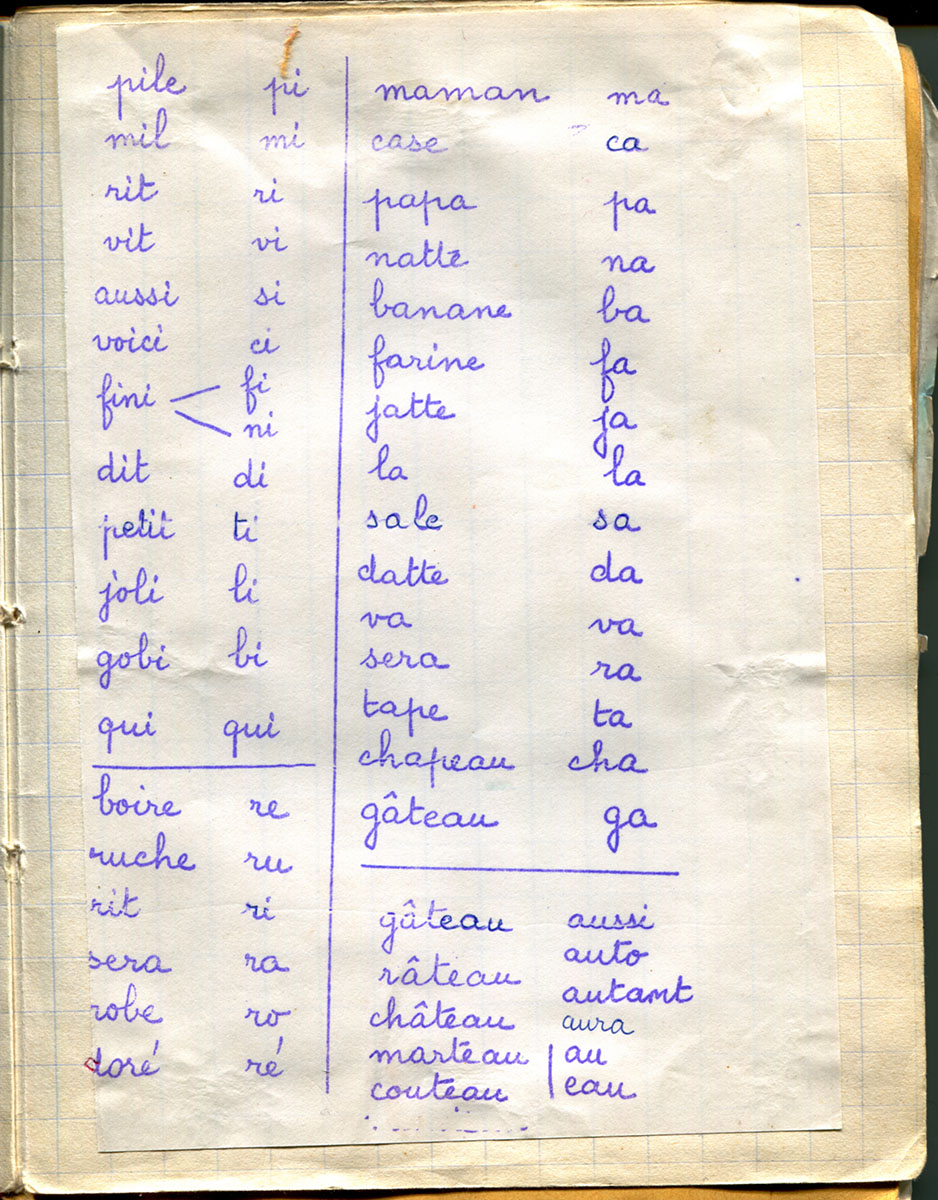 pile pi
mil mi
rit ri
vit vi
aussi si
voici ci
fini fi
ni
dit di
petit ti
joli li
gobi bi
qui qui
boire re
ruche ru
rit ri
sera ra
robe ro
doré ré
maman ma
case ca
papa pa
natte na
banane ba
farine fa
jatte ja
la la
sale sa
datte da
va va
sera ra
tape ta
chapeau cha
gâteau ga
gâteau aussi
râteau auto
château autamt
marteau aura
couteau au
eau